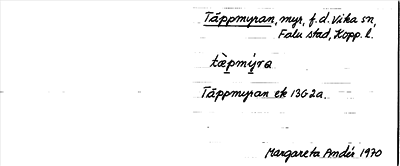 Täppmyran, myr, f.d. Vika sn,
Falu stad, Kopp. l.
tæ̀pmỳra
Täppmyran ek 13G2a.
Margareta Andér 1970